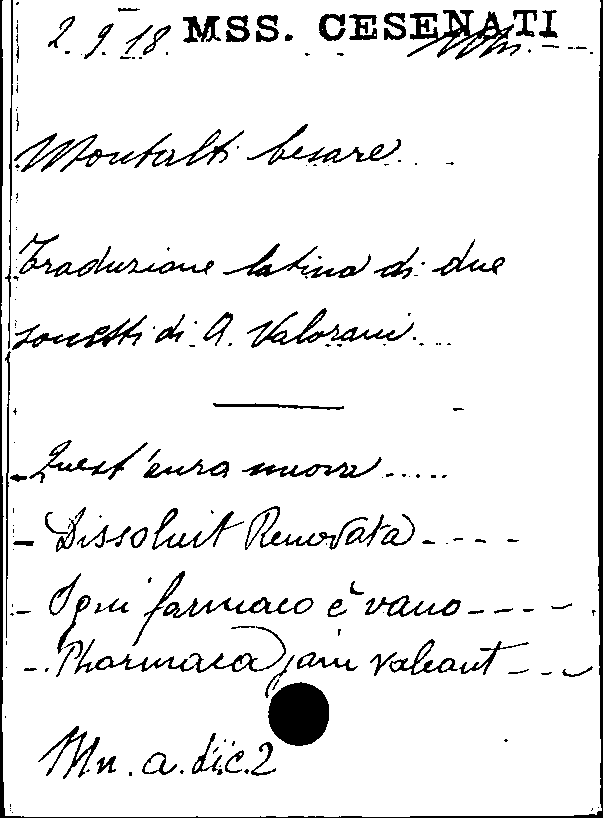 2.9.18 MSS. CESENATI
Montalti Cesare
Traduzione latina di due
sonetti di A. Valorani
Quest'aura nuova .....
- Dissoluit Renovata - - - -
- Ogni farmaco è vano - - - -
- Pharmaca jam valeant - - -
Mn. a. sic. 2